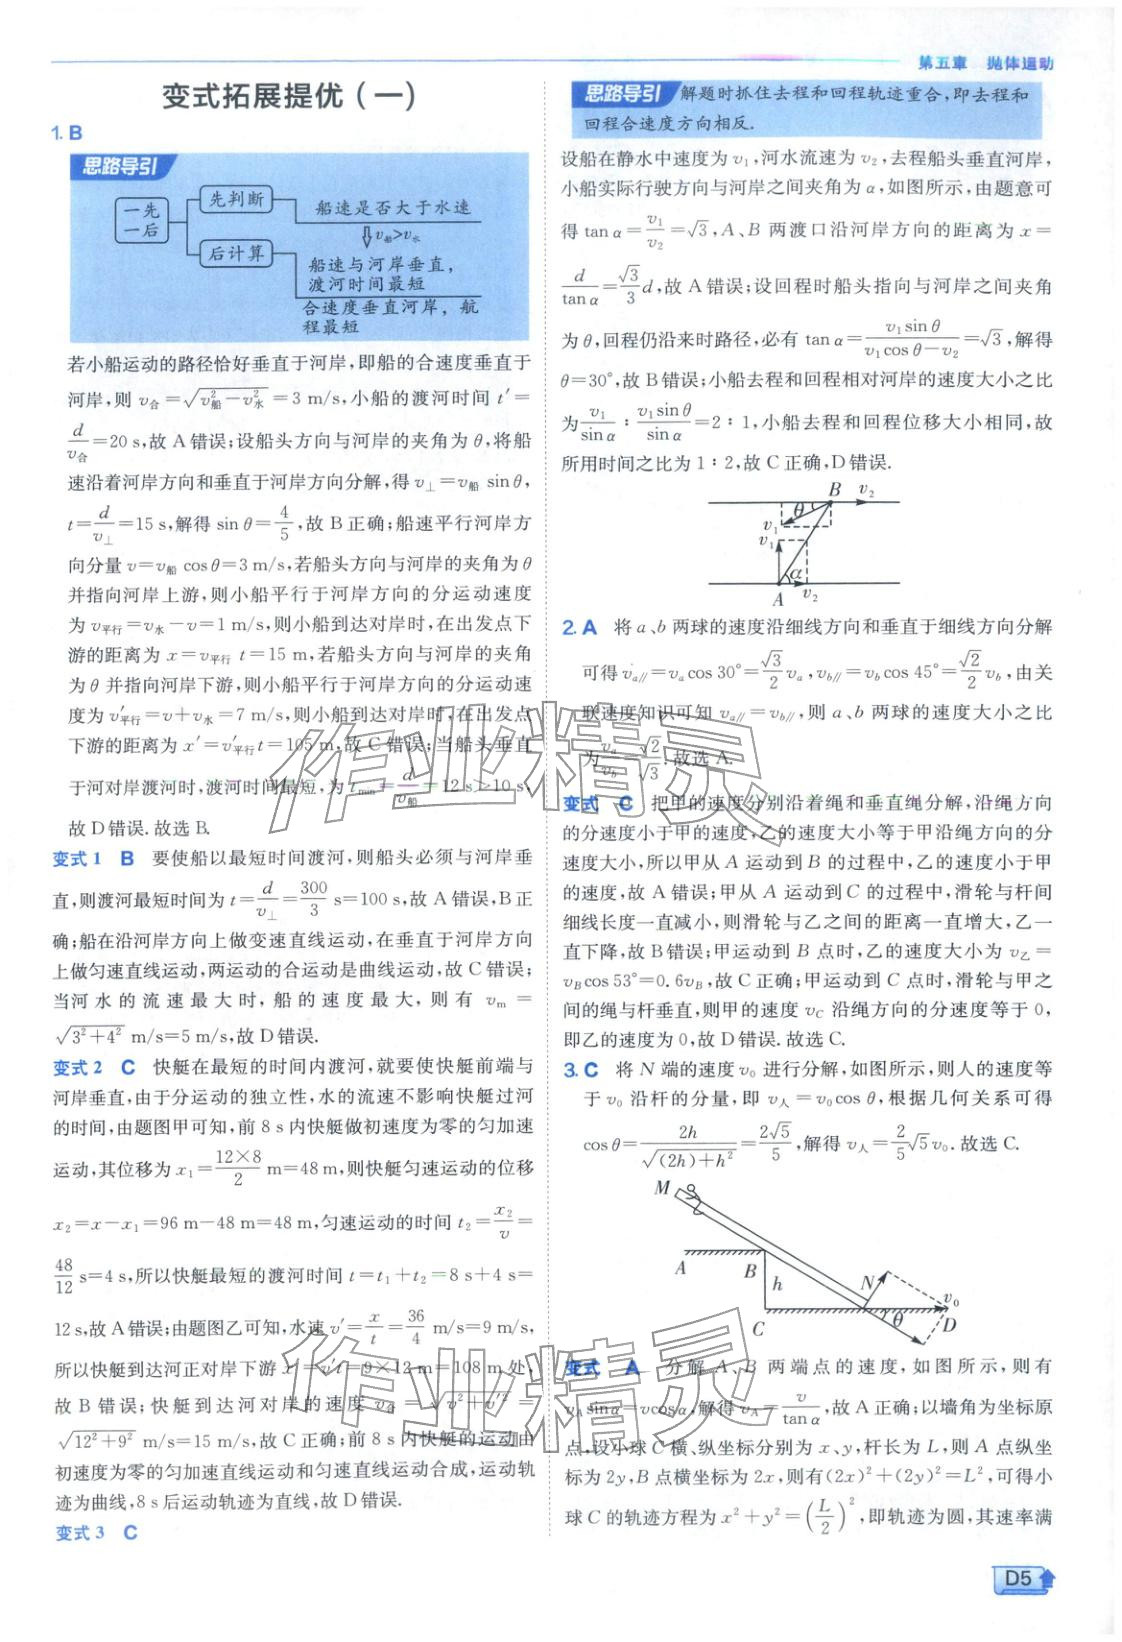 第五章 抛体运动
变式拓展提优(一)
1. B
思路导引
一先一后
先判断
船速是否大于水速
v船>v水
后计算
船速与河岸垂直,
渡河时间最短
合速度垂直河岸,航
程最短
若小船运动的路径恰好垂直于河岸,即船的合速度垂直于
河岸,则 v合=√(v船²-v水²)=3 m/s,小船的渡河时间 t′=
d/v合=20 s,故 A 错误;设船头方向与河岸的夹角为 θ,将船
速沿着河岸方向和垂直于河岸方向分解,得 v⊥=v船 sin θ,
t=d/v⊥=15 s,解得 sin θ=4/5,故 B 正确;船速平行河岸方
向分量 v=v船 cos θ=3 m/s,若船头方向与河岸的夹角为 θ
并指向河岸上游,则小船平行于河岸方向的分运动速度
为 v平行=v水-v=1 m/s,则小船到达对岸时,在出发点下
游的距离为 x=v平行 t=15 m,若船头方向与河岸的夹角
为 θ 并指向河岸下游,则小船平行于河岸方向的分运动速
度为 v′平行=v+v水=7 m/s,则小船到达对岸时,在出发点
下游的距离为 x′=v′平行t=105 m,故 C 错误;当船头垂直
于河对岸渡河时,渡河时间最短,为 tmin=d/v船=12 s>10 s,
故 D 错误. 故选 B.
变式 1 B 要使船以最短时间渡河,则船头必须与河岸垂
直,则渡河最短时间为 t=d/v⊥=300/3 s=100 s,故 A 错误,B 正
确;船在沿河岸方向上做变速直线运动,在垂直于河岸方向
上做匀速直线运动,两运动的合运动是曲线运动,故 C 错误;
当河水的流速最大时,船的速度最大,则有 vm=
√(3²+4²) m/s=5 m/s,故 D 错误.
变式 2 C 快艇在最短的时间内渡河,就要使快艇前端与
河岸垂直,由于分运动的独立性,水的流速不影响快艇过河
的时间,由题图甲可知,前 8 s 内快艇做初速度为零的匀加速
运动,其位移为 x₁=12×8/2 m=48 m,则快艇匀速运动的位移
x₂=x-x₁=96 m-48 m=48 m,匀速运动的时间 t₂=x₂/v=
48/12 s=4 s,所以快艇最短的渡河时间 t=t₁+t₂=8 s+4 s=
12 s,故 A 错误;由题图乙可知,水速 v′=x/t=36/4 m/s=9 m/s,
所以快艇到达河正对岸下游 x′=v′t=9×12 m=108 m 处,
故 B 错误;快艇到达河对岸的速度 v合=√(v²+v′²)=
√(12²+9²) m/s=15 m/s,故 C 正确;前 8 s 内快艇的运动由
初速度为零的匀加速直线运动和匀速直线运动合成,运动轨
迹为曲线,8 s 后运动轨迹为直线,故 D 错误.
变式 3 C
思路导引 解题时抓住去程和回程轨迹重合,即去程和
回程合速度方向相反.
设船在静水中速度为 v₁,河水流速为 v₂,去程船头垂直河岸,
小船实际行驶方向与河岸之间夹角为 α,如图所示,由题意可
得 tan α=v₁/v₂=√3,A、B 两渡口沿河岸方向的距离为 x=
d/tan α=√3/3 d,故 A 错误;设回程时船头指向与河岸之间夹角
为 θ,回程仍沿来时路径,必有 tan α=v₁sin θ/(v₁cos θ-v₂)=√3,解得
θ=30°,故 B 错误;小船去程和回程相对河岸的速度大小之比
为 v₁/sin α : v₁sin θ/sin α=2∶1,小船去程和回程位移大小相同,故
所用时间之比为 1∶2,故 C 正确,D 错误.
B v₂
θ
v₁
v₁
α
A v₂
2. A 将 a、b 两球的速度沿细线方向和垂直于细线方向分解
可得 va//=va cos 30°=√3/2 va,vb//=vb cos 45°=√2/2 vb,由关
联速度知识可知 va//=vb//,则 a、b 两球的速度大小之比
为 va/vb=√2/√3. 故选 A.
变式 C 把甲的速度分别沿着绳和垂直绳分解,沿绳方向
的分速度小于甲的速度,乙的速度大小等于甲沿绳方向的分
速度大小,所以甲从 A 运动到 B 的过程中,乙的速度小于甲
的速度,故 A 错误;甲从 A 运动到 C 的过程中,滑轮与杆间
细线长度一直减小,则滑轮与乙之间的距离一直增大,乙一
直下降,故 B 错误;甲运动到 B 点时,乙的速度大小为 v乙=
vBcos 53°=0.6vB,故 C 正确;甲运动到 C 点时,滑轮与甲之
间的绳与杆垂直,则甲的速度 vC 沿绳方向的分速度等于 0,
即乙的速度为 0,故 D 错误. 故选 C.
3. C 将 N 端的速度 v₀ 进行分解,如图所示,则人的速度等
于 v₀ 沿杆的分量,即 v人=v₀cos θ,根据几何关系可得
cos θ=2h/√((2h)+h²)=2√5/5,解得 v人=2/5√5v₀. 故选 C.
M
A B h N v₀
C θ D
变式 A 分解 A、B 两端点的速度,如图所示,则有
vAsin α=vcos α,解得 vA=v/tan α,故 A 正确;以墙角为坐标原
点,设小球 C 横、纵坐标分别为 x、y,杆长为 L,则 A 点纵坐
标为 2y,B 点横坐标为 2x,则有(2x)²+(2y)²=L²,可得小
球 C 的轨迹方程为 x²+y²=(L/2)²,即轨迹为圆,其速率满
D5
作业精灵
作业精灵